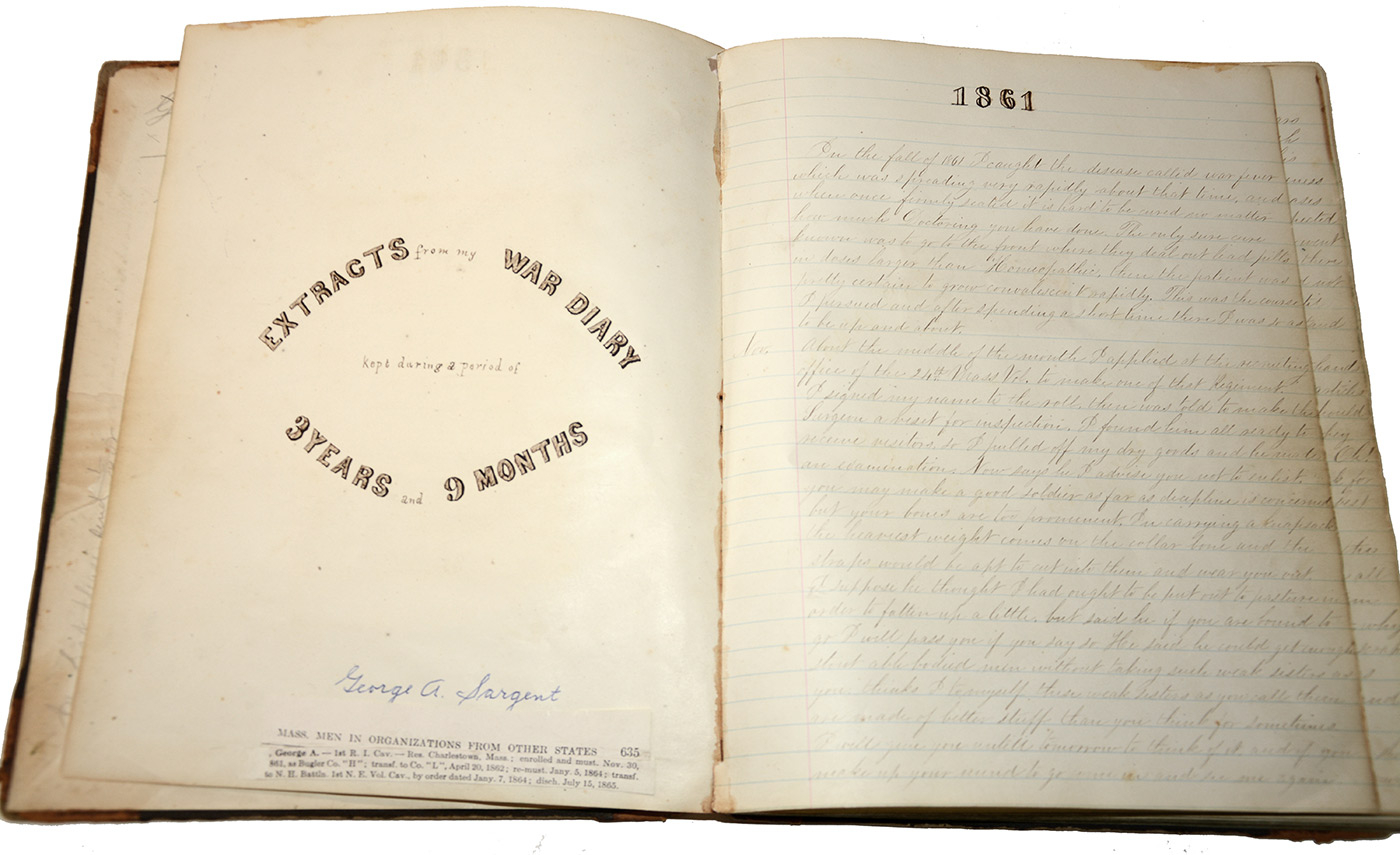 EXTRACTS from my WAR DIARY
kept during a period of
3 YEARS and 9 MONTHS
George A. Sargent
MASS. MEN IN ORGANIZATIONS FROM OTHER STATES 635
George A. — 1st R. I. Cav. — Res. Charlestown, Mass.; enrolled and must. Nov. 30,
861, as Bugler Co. "H"; transf. to Co. "L", April 20, 1862; re-must. Jany. 5, 1864; transf.
to N. H. Battln. 1st N. E. Vol. Cav., by order dated Jany. 7, 1864; disch. July 15, 1865.
1861
In the fall of 1861 I caught the disease called war fever
which was spreading very rapidly about that time, and
when once firmly seated it is hard to be cured no matter
how much Doctoring you have done. The only sure cure
known was to go to the front where they deal out lead pills
in doses larger than Homeopathic, there the patient was
pretty certain to grow convalescent rapidly. This was the course
I persued and after spending a short time there I was so as
to be up and about.
Nov. About the middle of the month I applied at the recruiting
office of the 24th Mass Vol. to make one of that Regiment.
I signed my name to the roll, then was told to make the
Surgeon a viset for inspection. I found him all ready to
receive visitors, so I pulled off my dry goods and he made
an examination. Now says he I advise you not to enlist,
you may make a good soldier as far as decipline is concerned
but your bones are too promenent. In carrying a knapsack
the heaviest weight comes on the collar bone and the
straps would be apt to cut into them and wear you out.
I suppose he thought I had ought to be put out to pasture in
order to fatten up a little, but said he if you are bound to
go I will pass you if you say so He said he could get enough
stout able bodied men without taking such weak sisters as
you, thinks I to myself these weak sisters as you call them
are made of better stuff than you think for sometimes
I will give you untill tomorrow to think of it and if you
make up your mind to go come in and see me again